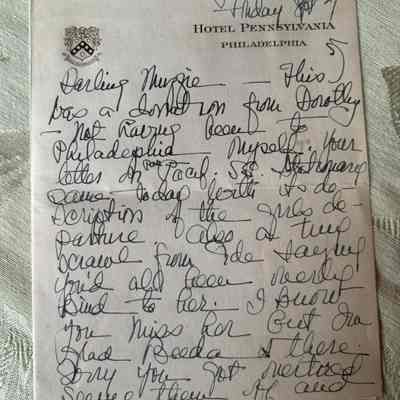 Friday
HOTEL PENNSYLVANIA
PHILADELPHIA
Darling — This
was a donation from Dorothy
- Not having been to
Philadelphia myself. Your
letter on Pacif. Stationary
came today with its de-
scription of the girls de-
parture - also a tiny
scrawl from Ide saying
you'd all been
kind to her. I
you miss her But I'm
glad is there.
Sorry you got
seeing them off and